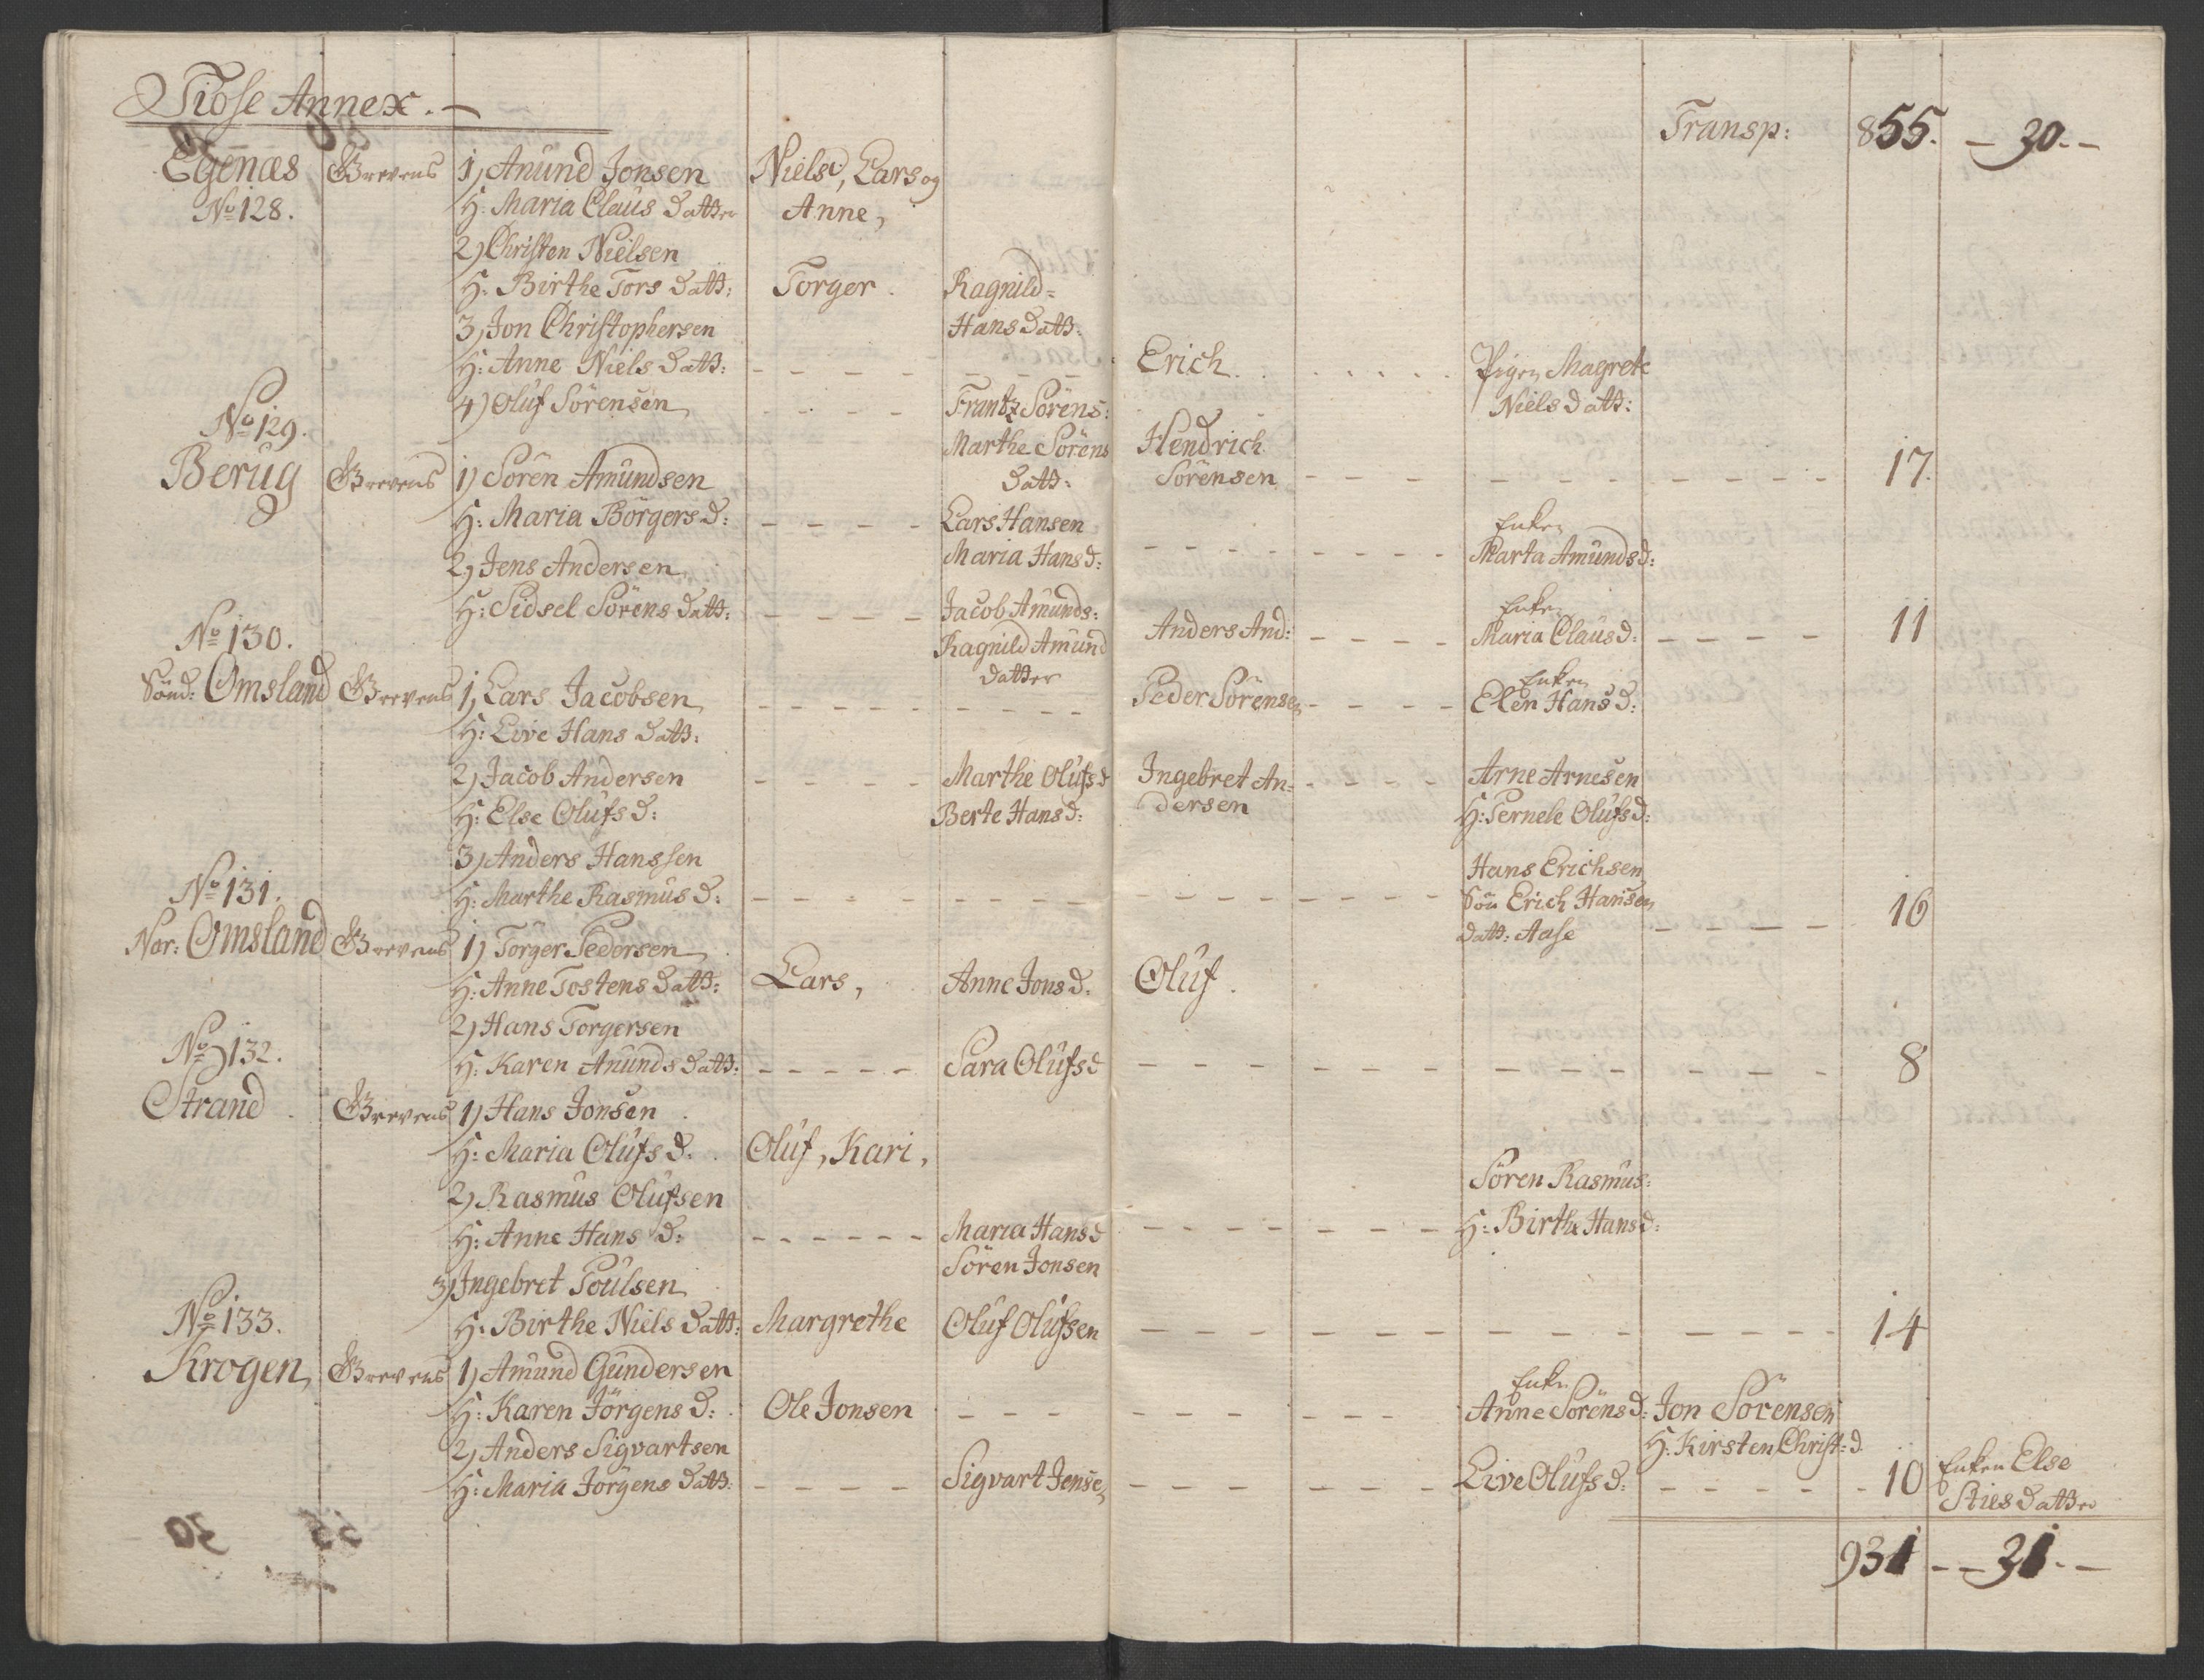 Tiose Annex. -
Transp: 855. - 30. -
Egenæs Grevens 1, Anund Jonsen Niels, Lars og
No 128. H: Maria Claus Datter Anne,
2) Christen Nielsen
H: Birthe Tors Datt: Torger. Ragnild=
3, Jon Christophersen Hans Datt:
H: Anne Niels Datt: - - - - - - - - Erich. . . . . . . Pigen Magrete
4) Oluf Sörensen - - - - Frantz Sörens: Niels Datt:
No 129. Marthe Sörens Hendrich
Berug Grevens 1) Sören Amundsen Datt: Sörensen - - - - - - - - - - 17.
H: Maria Börgers D: - - - - Lars Hansen Enken
2, Jens Andersen Maria Hans D: - - - - - - - - Marta Amunds D:
H: Sidsel Sörens Datt: - - - - Jacob Amunds: Enken
No 130. Ragnild Amund Anders And: - - - - Maria Claus D: - - - - 11
Datter Enken
Sönd: Omsland Grevens 1, Lars Jacobsen - - - - - - - - Peder Sörensen - - - - Elen Hans D:
H: Live Hans Datt:
2) Jacob Andersen - - - - Marthe Olufs D Ingebret An= - - - - Arne Arnesen
H: Else Olufs D: Berte Hans D: dersen H: Pernele Olufs D:
3) Anders Hanssen Hans Erichsen
No 131. H: Marthe Rasmus D: - - - - - - - - - - - - - - - - Sön Erich Hansen 16
Nor: Omsland Grevens 1) Torger Pedersen Datt: Aase - - - -
H: Anne Tostens Datt: Lars, Anne Jons D: Oluf.
2) Hans Torgersen
No 132. H: Karen Anunds Datt: - - - - - Sara Olufs D - - - - - - - - - - - - - 8
Strand. Grevens 1) Hans Jonsen.
H: Maria Olufs D. . Oluf, Kari,
2) Rasmus Olufsen Sören Rasmus:
H: Anne Hans D: - - - - - - Maria Hans D - - - - - - - - H: Birthe Hans D:
Sören Jonsen
3) Ingebret Poulsen
No 133. H: Birthe Niels Datt: Margrethe Oluf Olufsen - - - - - - - - - - - - - 14
Krogen, Grevens 1) Amund Gundersen Enken
H: Karen Jörgens D: . Ole Jonsen - - - - - - - - - Anne Sörens D: Jon Sörensen
2) Anders Sigvartsen H: Kirsten Christ: D
H: Maria Jörgens Datt: - - - - Sigvart Jensen - - - - - - - - Live Olufs D: - - - - - 10 Enken Else
Sties Datter
931 - - 31. -